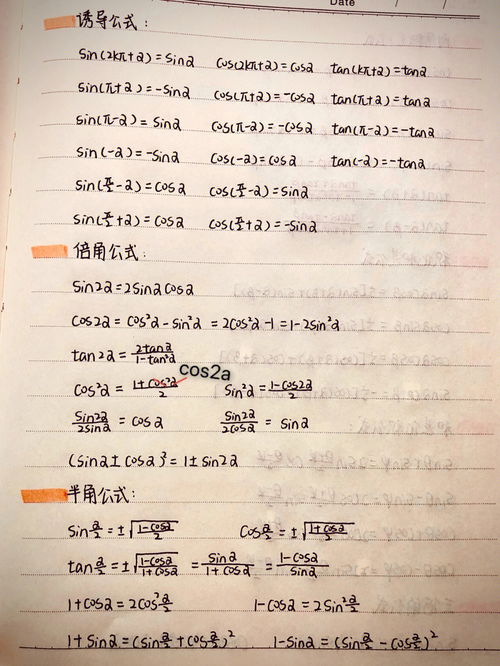 Date
诱导公式:
Sin(2kπ+α)=Sinα cos(2kπ+α)=cosα tan(kπ+α)=tanα
Sin(π+α)=-Sinα cos(π+α)=-cosα tan(π+α)=tanα
Sin(π-α)=Sinα cos(π-α)=-cosα tan(π-α)=-tanα
Sin(-α)=-Sinα cos(-α)=cosα tan(-α)=-tanα
Sin(π/2-α)=cosα cos(π/2-α)=Sinα
Sin(π/2+α)=cosα cos(π/2+α)=-Sinα
倍角公式:
Sin2α=2Sinαcosα
cos2α=cos²α-Sin²α=2cos²α-1=1-2Sin²α
tan2α=2tanα/(1-tan²α)
cos2a
cos²α=(1+cos²α)/2 Sin²α=(1-cos2α)/2
Sin2α/2Sinα=cosα Sin2α/2cosα=Sinα
(Sinα±cosα)²=1±Sin2α
半角公式:
Sinα/2=±√((1-cosα)/2) cosα/2=±√((1+cosα)/2)
tanα/2=±√((1-cosα)/(1+cosα))=Sinα/(1+cosα)=(1-cosα)/Sinα
1+cosα=2cos²α/2 1-cosα=2Sin²α/2
1+Sinα=(Sinα/2+cosα/2)² 1-Sinα=(Sinα/2-cosα/2)²